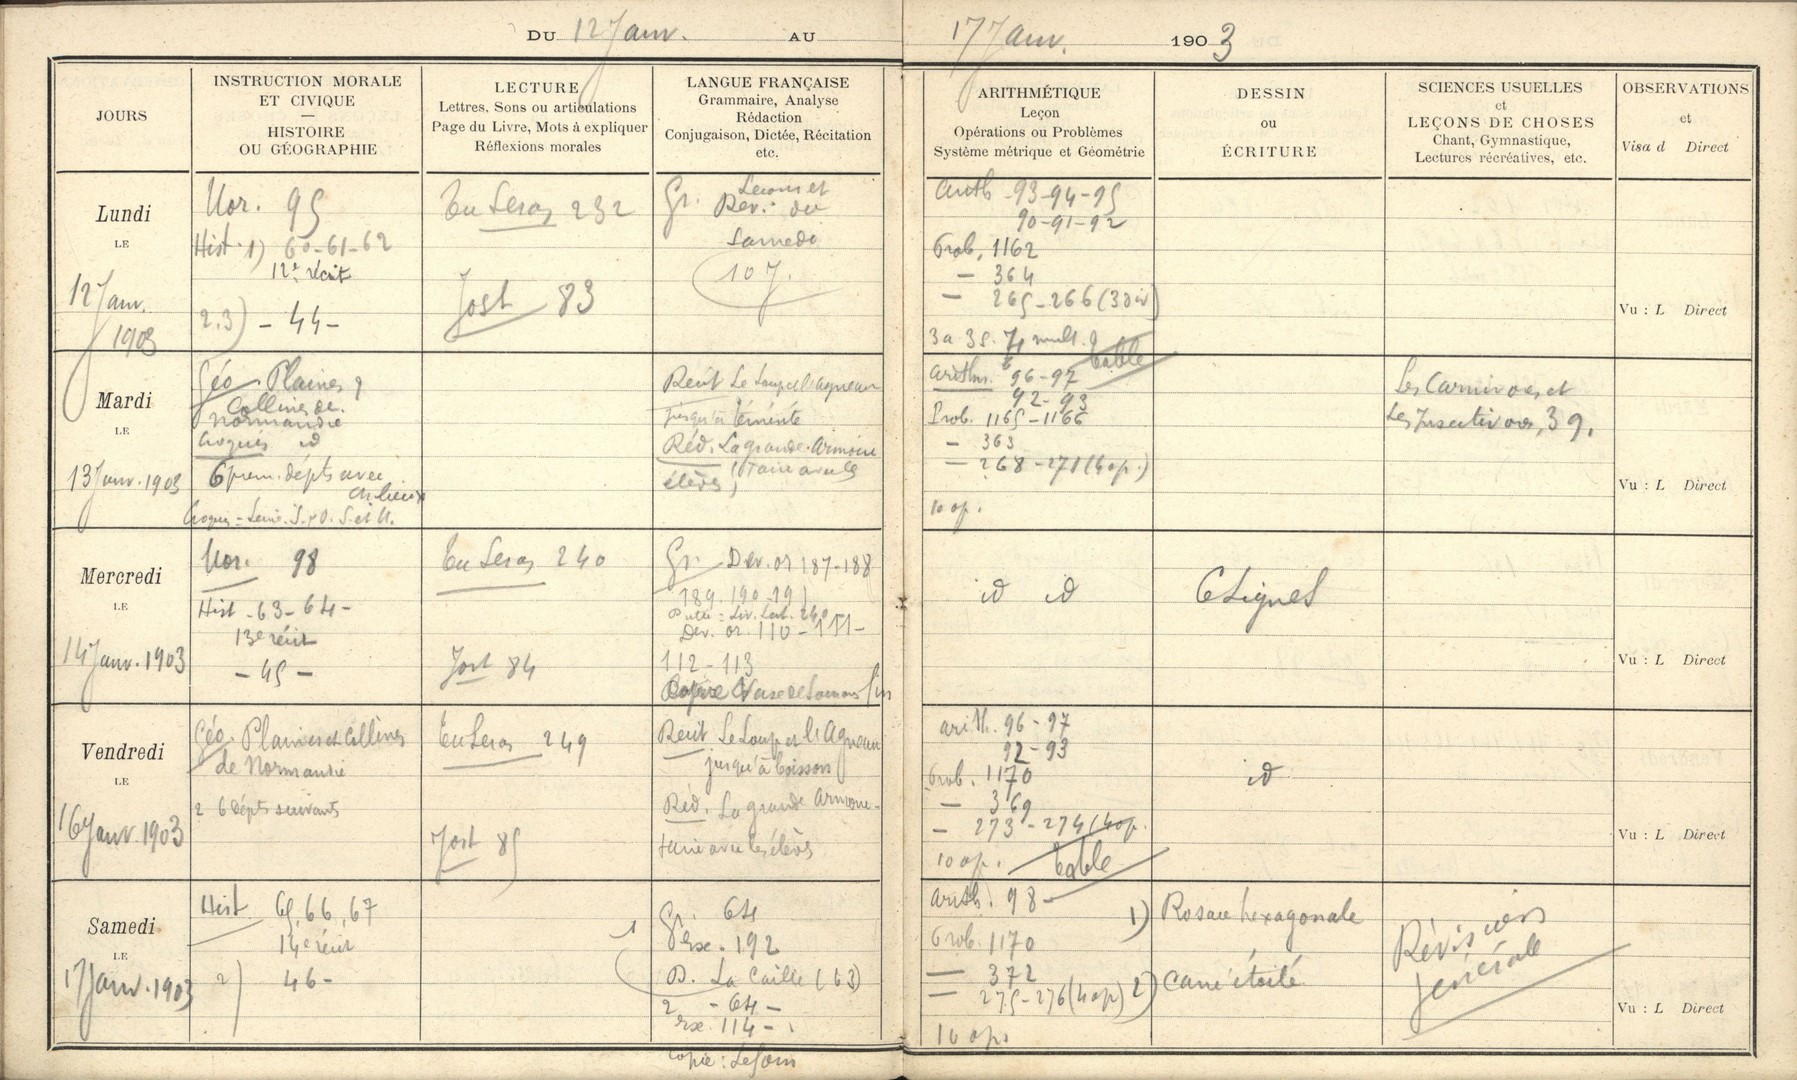 DU 12 Janv. AU 17 Janv. 1903
JOURS
INSTRUCTION MORALE
ET CIVIQUE
—
HISTOIRE
OU GÉOGRAPHIE
LECTURE
Lettres, Sons ou articulations
Page du Livre, Mots à expliquer
Réflexions morales
LANGUE FRANÇAISE
Grammaire, Analyse
Rédaction
Conjugaison, Dictée, Récitation
etc.
ARITHMÉTIQUE
Leçon
Opérations ou Problèmes
Système métrique et Géométrie
DESSIN
OU
ÉCRITURE
SCIENCES USUELLES
et
LEÇONS DE CHOSES
Chant, Gymnastique,
Lectures récréatives, etc.
OBSERVATIONS
et
Visa d Direct
Lundi
LE
12 Janv.
1903
Mor. 95
Hist. 1) 60-61-62
12e récit
2.3) - 44 -
232
Jost 83
Gr. Leçons et
Dev. du
Samedi
107.
Arith. 93-94-95
90-91-92
Prob. 1162
— 364
— 265-266 (3 div)
table
Vu : L Direct
Mardi
LE
13 Janv. 1903
Géo. Plaines &
Collines de
Normandie
Croquis id
6 prem. dépts avec
ch. lieux
Croquis = Seine. S. & O. S. et M.
Récit Le Loup et l'agneau
jusqu'à témérité
Réd. La grande Armoire
faire avec les
élèves
Arithm. 96-97
92-93
Prob. 1165-1166
— 363
— 268-271 (4 op.)
10 op.
Les Carnivores et
Les Insectivores, 39.
Vu : L Direct
Mercredi
LE
14 Janv. 1903
Mor. 98
Hist. 63-64-
13e récit
- 45 -
240
Jost 84
Gr. Dev. or 187-188
189. 190-191
Dev. or. 110-111-
112-113
Vase de Soissons fin
id id
6 Lignes
Vu : L Direct
Vendredi
LE
16 Janv. 1903
Géo. Plaines et Collines
de Normandie
2 6 Dépts suivants
249
Jost 85
Récit Le Loup et l'Agneau
jusqu'à boisson
Réd. La grande Armoire.
faire avec les élèves
arith. 96-97
92-93
Prob. 1170
— 369
— 273-274 (4 op.
10 op. table
id
Vu : L Direct
Samedi
LE
17 Janv. 1903
Hist. 65, 66, 67
14e récit
2) 46-
1
Gr. 64
Exe. 192
D. La Caille (63)
2 - 64 -
exe. 114 -
Copie : Leçons
Arith. 98-
Prob. 1170
— 372
— 275-276 (4 op)
10 op.
1) Rosace hexagonale
2) Carré étoilé
Révisions
générale
Vu : L Direct